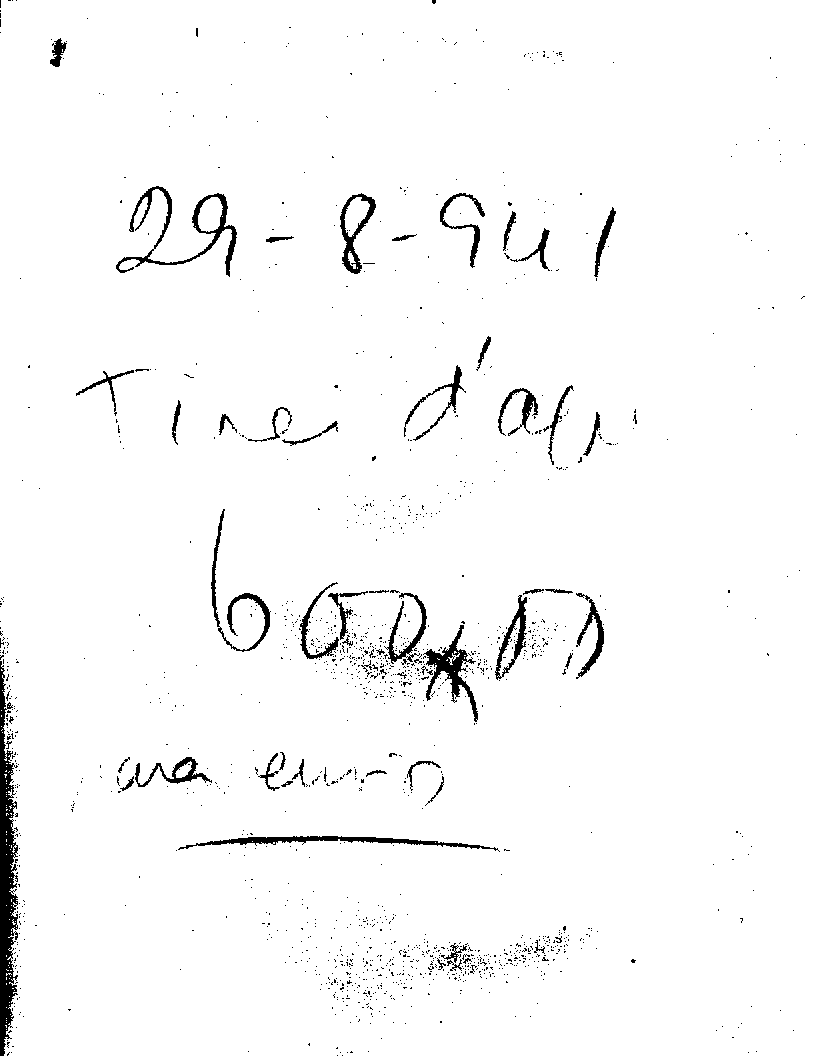 29-8-941
Tirei d'aqui
600,00
para envio